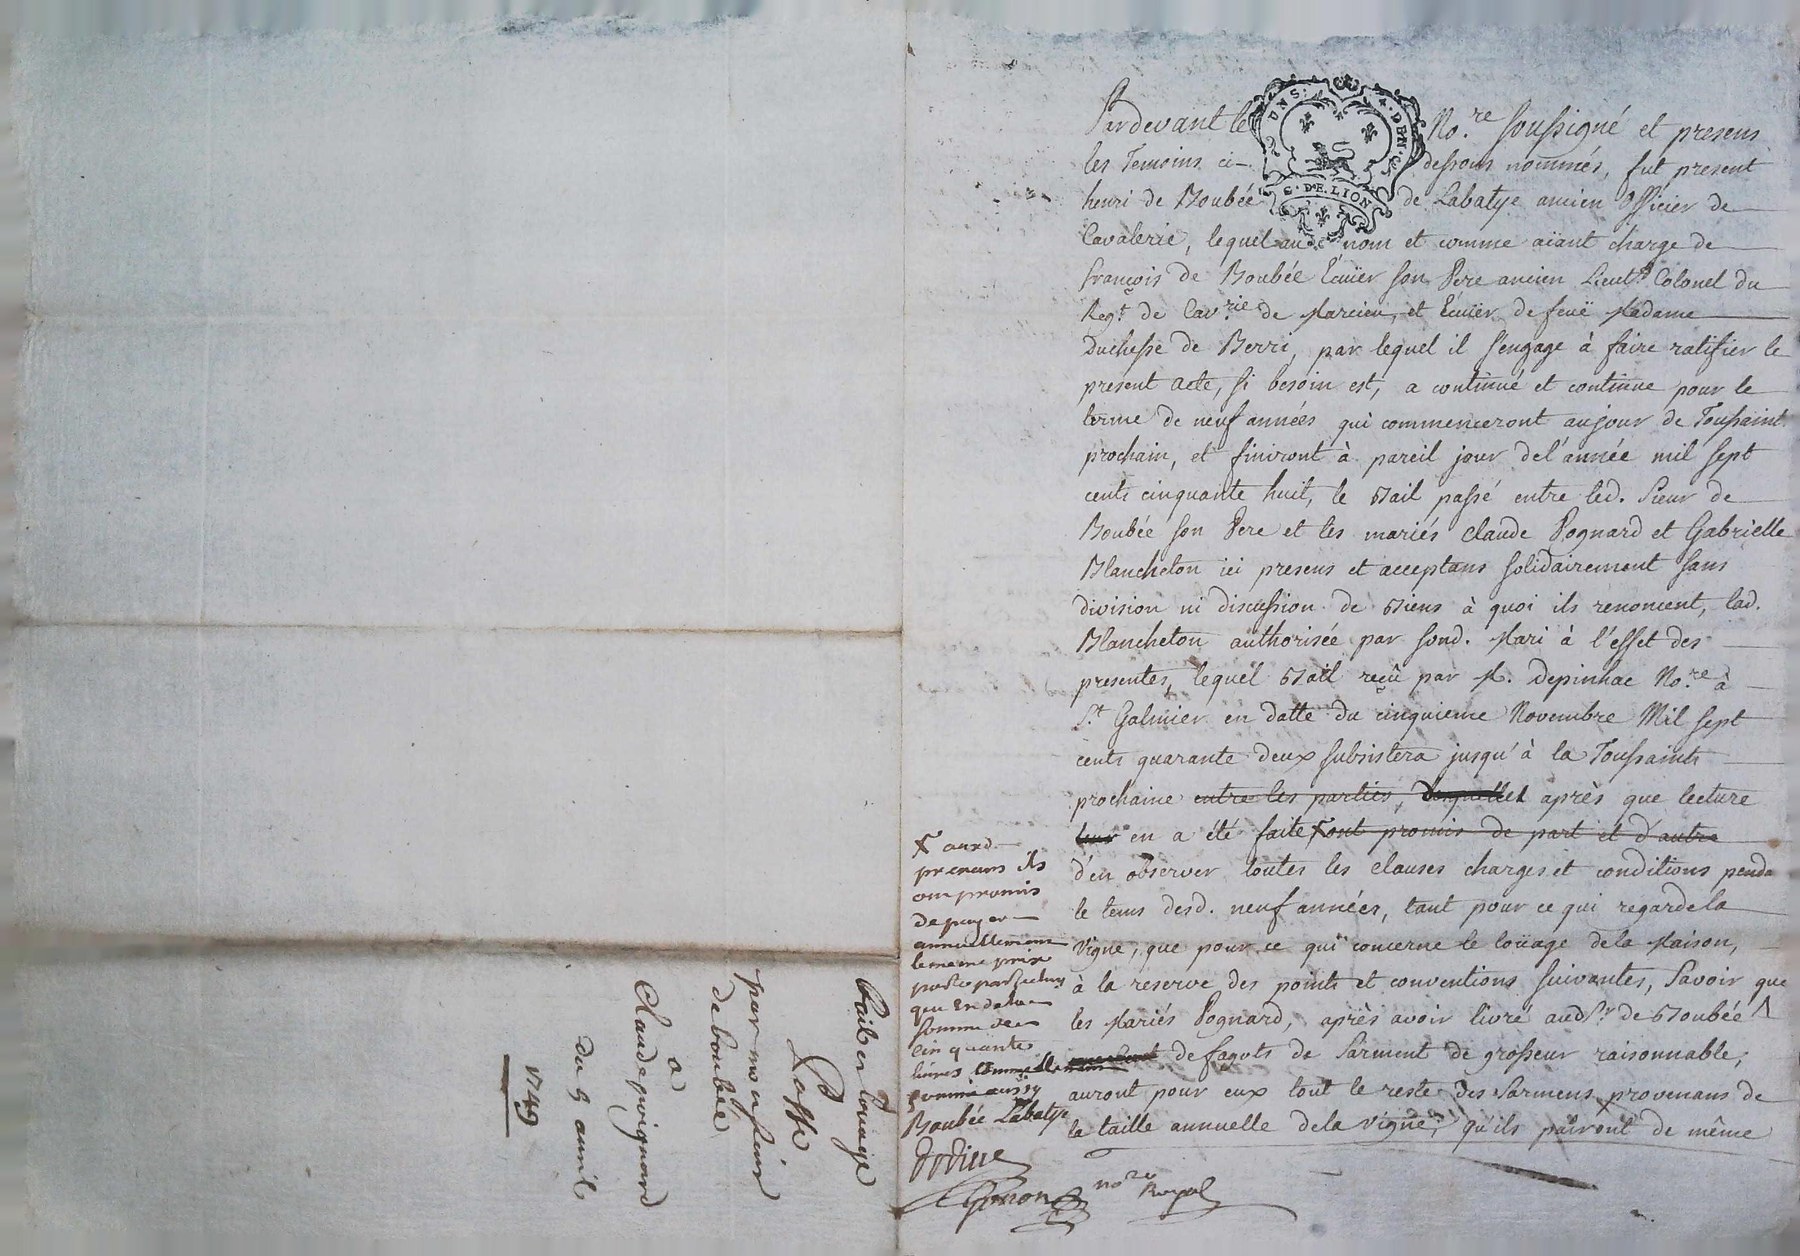 Pardevant le No.re soussigné et presens
les Temoins ci- dessous nommés, fut present
henri de Boubée de Labatye ancien Officier de
Cavalerie, lequel au nom et comme aïant charge de
françois de Boubée Ecuïer son Pere ancien Lieut.t Colonel du
Reg.t de Cav.rie de Marcieu, et Ecuïer de feuë Madame
Duchesse de Berri, par lequel il s'engage à faire ratifier le
present acte, si besoin est, a continué et continue pour le
terme de neuf années qui commenceront au jour de Toussaint
prochain, et finiront à pareil jour de l'année mil sept
cents cinquante huit, le Bail passé entre led. Sieur de
Boubée son Pere et les mariés Claude Pognard et Gabrielle
Blancheton ici presens et acceptans solidairement sans
division ni discussion de Biens à quoi ils renoncent, lad.
Blancheton authorisée par sond. Mari à l'effet des
presentes, lequel Bail reçû par M. Depinhac No.re à
S.t Galmier en datte du cinquieme Novembre Mil sept
cents quarante deux subsistera jusqu'à la Toussaints
prochaine entre les parties, desquelles après que lecture
leur en a été faite ont promis de part et d'autre
d'en observer toutes les clauses charges et conditions penda
le tems desd. neuf années, tant pour ce qui regarde la
Vigne, que pour ce qui concerne le loüage de la Maison,
à la reserve des points et conventions suivantes, Savoir que
les Mariés Pognard, après avoir livré aud S.r de Boubée
de fagots de Sarment de grosseur raisonnable,
auront pour eux tout le reste des Sarmens provenans de
la taille annuelle de la Vigne, qu'ils païront de même
G. DE LION
X auxd.
prenans ils
ont promis
de payer
annuellement
le meme prix
porté par icelluy
qui en de la
somme de
cinquante
livres
Boubée Labatye
no.re Royal
bail en louage
Passé
par monsieur
de boubée
a
Claude poignard
du 9 avril
1749